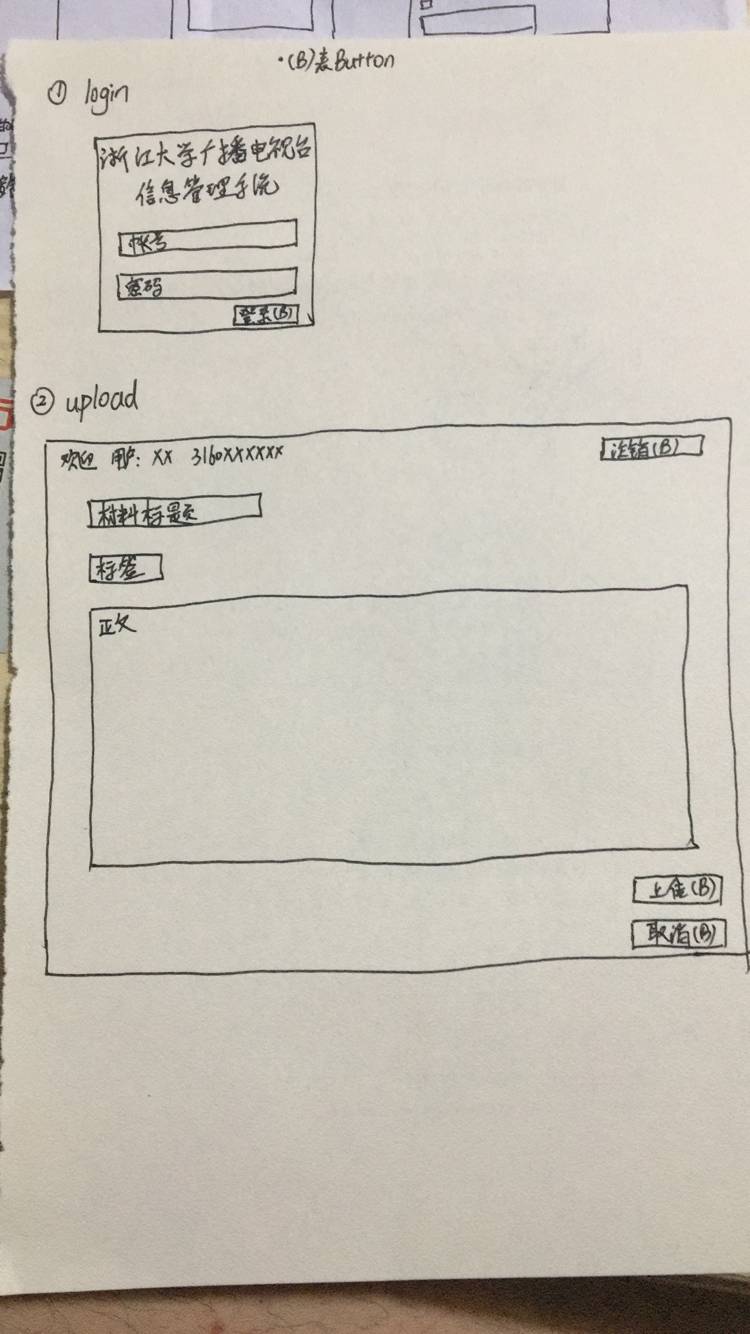 ·(B)表Button
① login
浙江大学广播电视台
信息管理系统
帐号
密码
登录(B)
② upload
欢迎 用户: XX 3160XXXXXX
注销(B)
材料标题
标签
正文
上传(B)
取消(B)